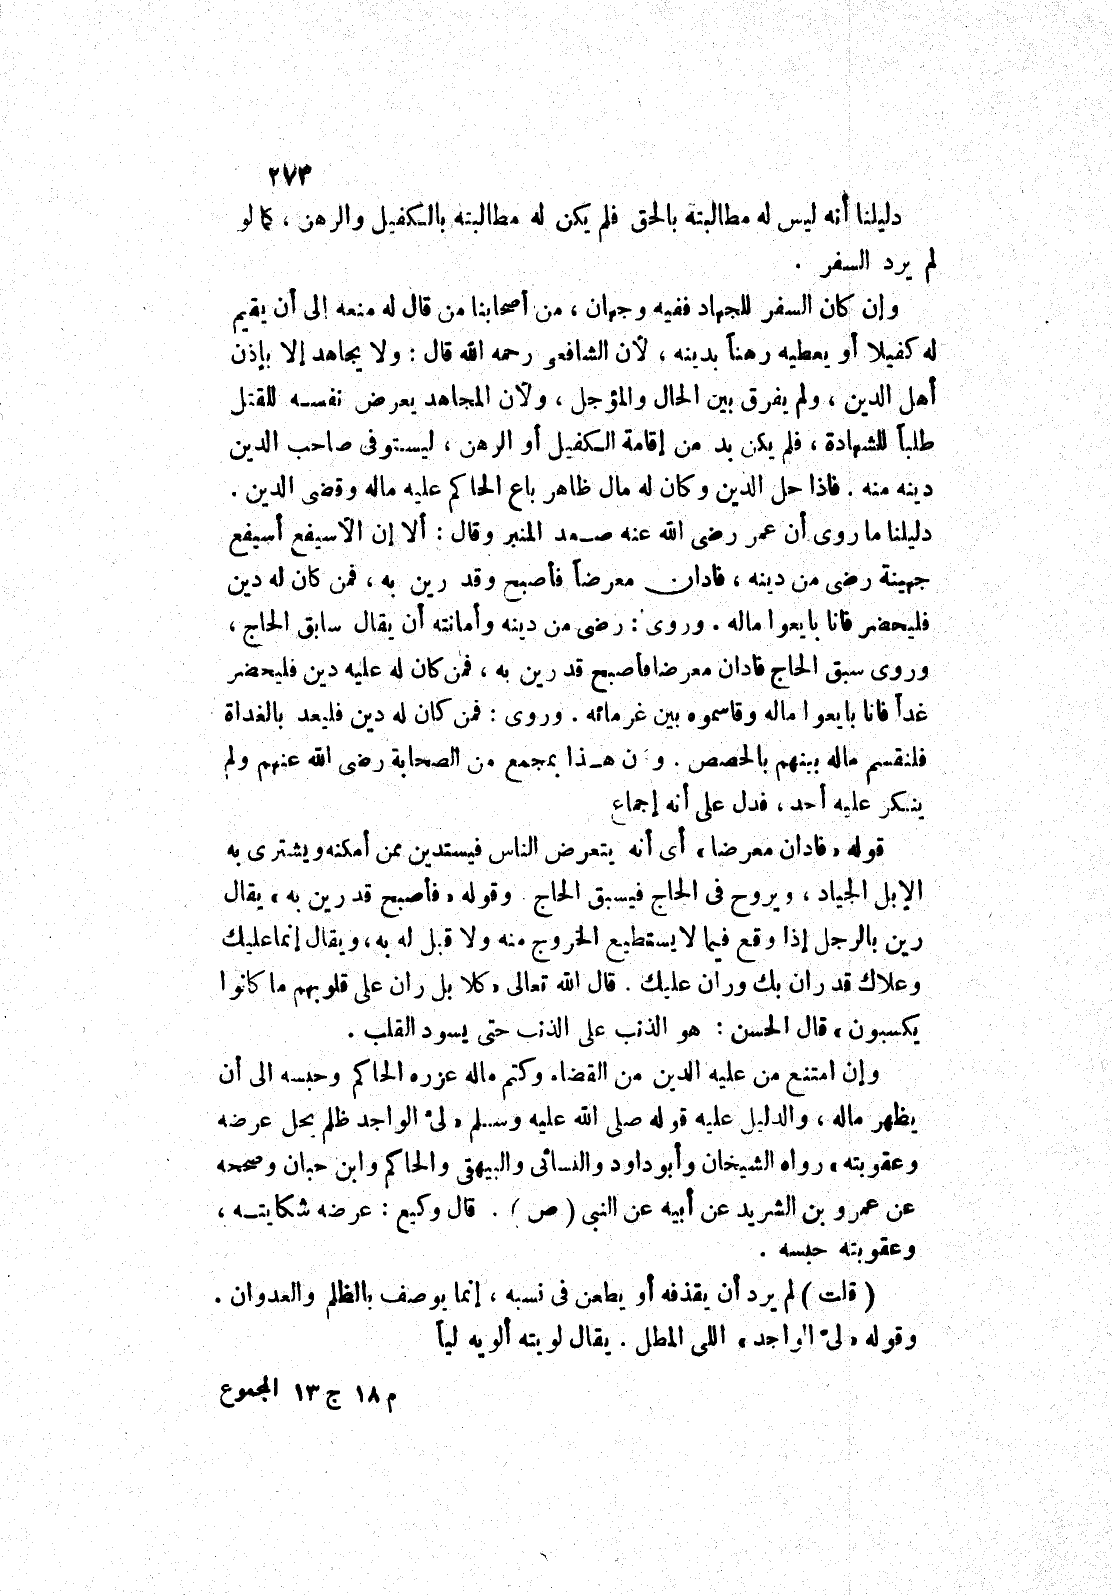 ٢٧٣
دليلنا أنه ليس له مطالبته بالحق فلم يكن له مطالبته بالكفيل والرهن ، كما لو
لم يرد السفر .
وإن كان السفر للجهاد ففيه وجهان ، من أصحابنا من قال له منعه إلى أن يقيم
له كفيلا أو يعطيه رهناً بدينه ، لأن الشافعى رحمه الله قال : ولا يجاهد إلا بإذن
أهل الدين ، ولم يفرق بين الحال والمؤجل ، ولأن المجاهد يعرض نفسه للقتل
طلباً للشهادة ، فلم يكن بد من إقامة الكفيل أو الرهن ، ليستوفى صاحب الدين
دينه منه . فاذا حل الدين وكان له مال ظاهر باع الحاكم عليه ماله وقضى الدين .
دليلنا ما روى أن عمر رضى الله عنه صعد المنبر وقال : ألا إن الأسيفع أسيفع
جهينة رضى من دينه ، فادان معرضاً فأصبح وقد رين به ، فمن كان له دين
فليحضر فانا بايعوا ماله . وروى : رضى من دينه وأمانته أن يقال سابق الحاج ،
وروى سبق الحاج فادان معرضا فأصبح قد رين به ، فمن كان له عليه دين فليحضر
غداً فانا بايعوا ماله وقاسموه بين غرمائه . وروى : فمن كان له دين فليعد بالغداة
فلنقسم ماله بينهم بالحصص . و ن هذا بمجمع من الصحابة رضى الله عنهم ولم
ينكر عليه أحد ، فدل على أنه إجماع
قوله «فادان معرضا» أى أنه يتعرض الناس فيستدين ممن أمكنه ويشترى به
الإبل الجياد ، ويروح فى الحاج فيسبق الحاج . وقوله «فأصبح قد رين به» يقال
رين بالرجل إذا وقع فيما لا يستطيع الخروج منه ولا قبل له به، ويقال إنما عليك
وعلاك قد ران بك وران عليك . قال الله تعالى «كلا بل ران على قلوبهم ما كانوا
يكسبون» قال الحسن : هو الذنب على الذنب حتى يسود القلب .
وإن امتنع من عليه الدين من القضاء وكتم ماله عزره الحاكم وحبسه الى أن
يظهر ماله ، والدليل عليه قوله صلى الله عليه وسلم «لىّ الواجد ظلم يحل عرضه
وعقوبته» رواه الشيخان وأبوداود والنسائى والبيهقى والحاكم وابن حبان وصححه
عن عمرو بن الشريد عن أبيه عن النبى (ص) . قال وكيع : عرضه شكايته ،
وعقوبته حبسه .
(قلت) لم يرد أن يقذفه أو يطعن فى نسبه ، إنما يوصف بالظلم والعدوان .
وقوله «لىّ الواجد» اللى المطل . يقال لويته ألويه لياً
م ١٨ ج ١٣ المجموع